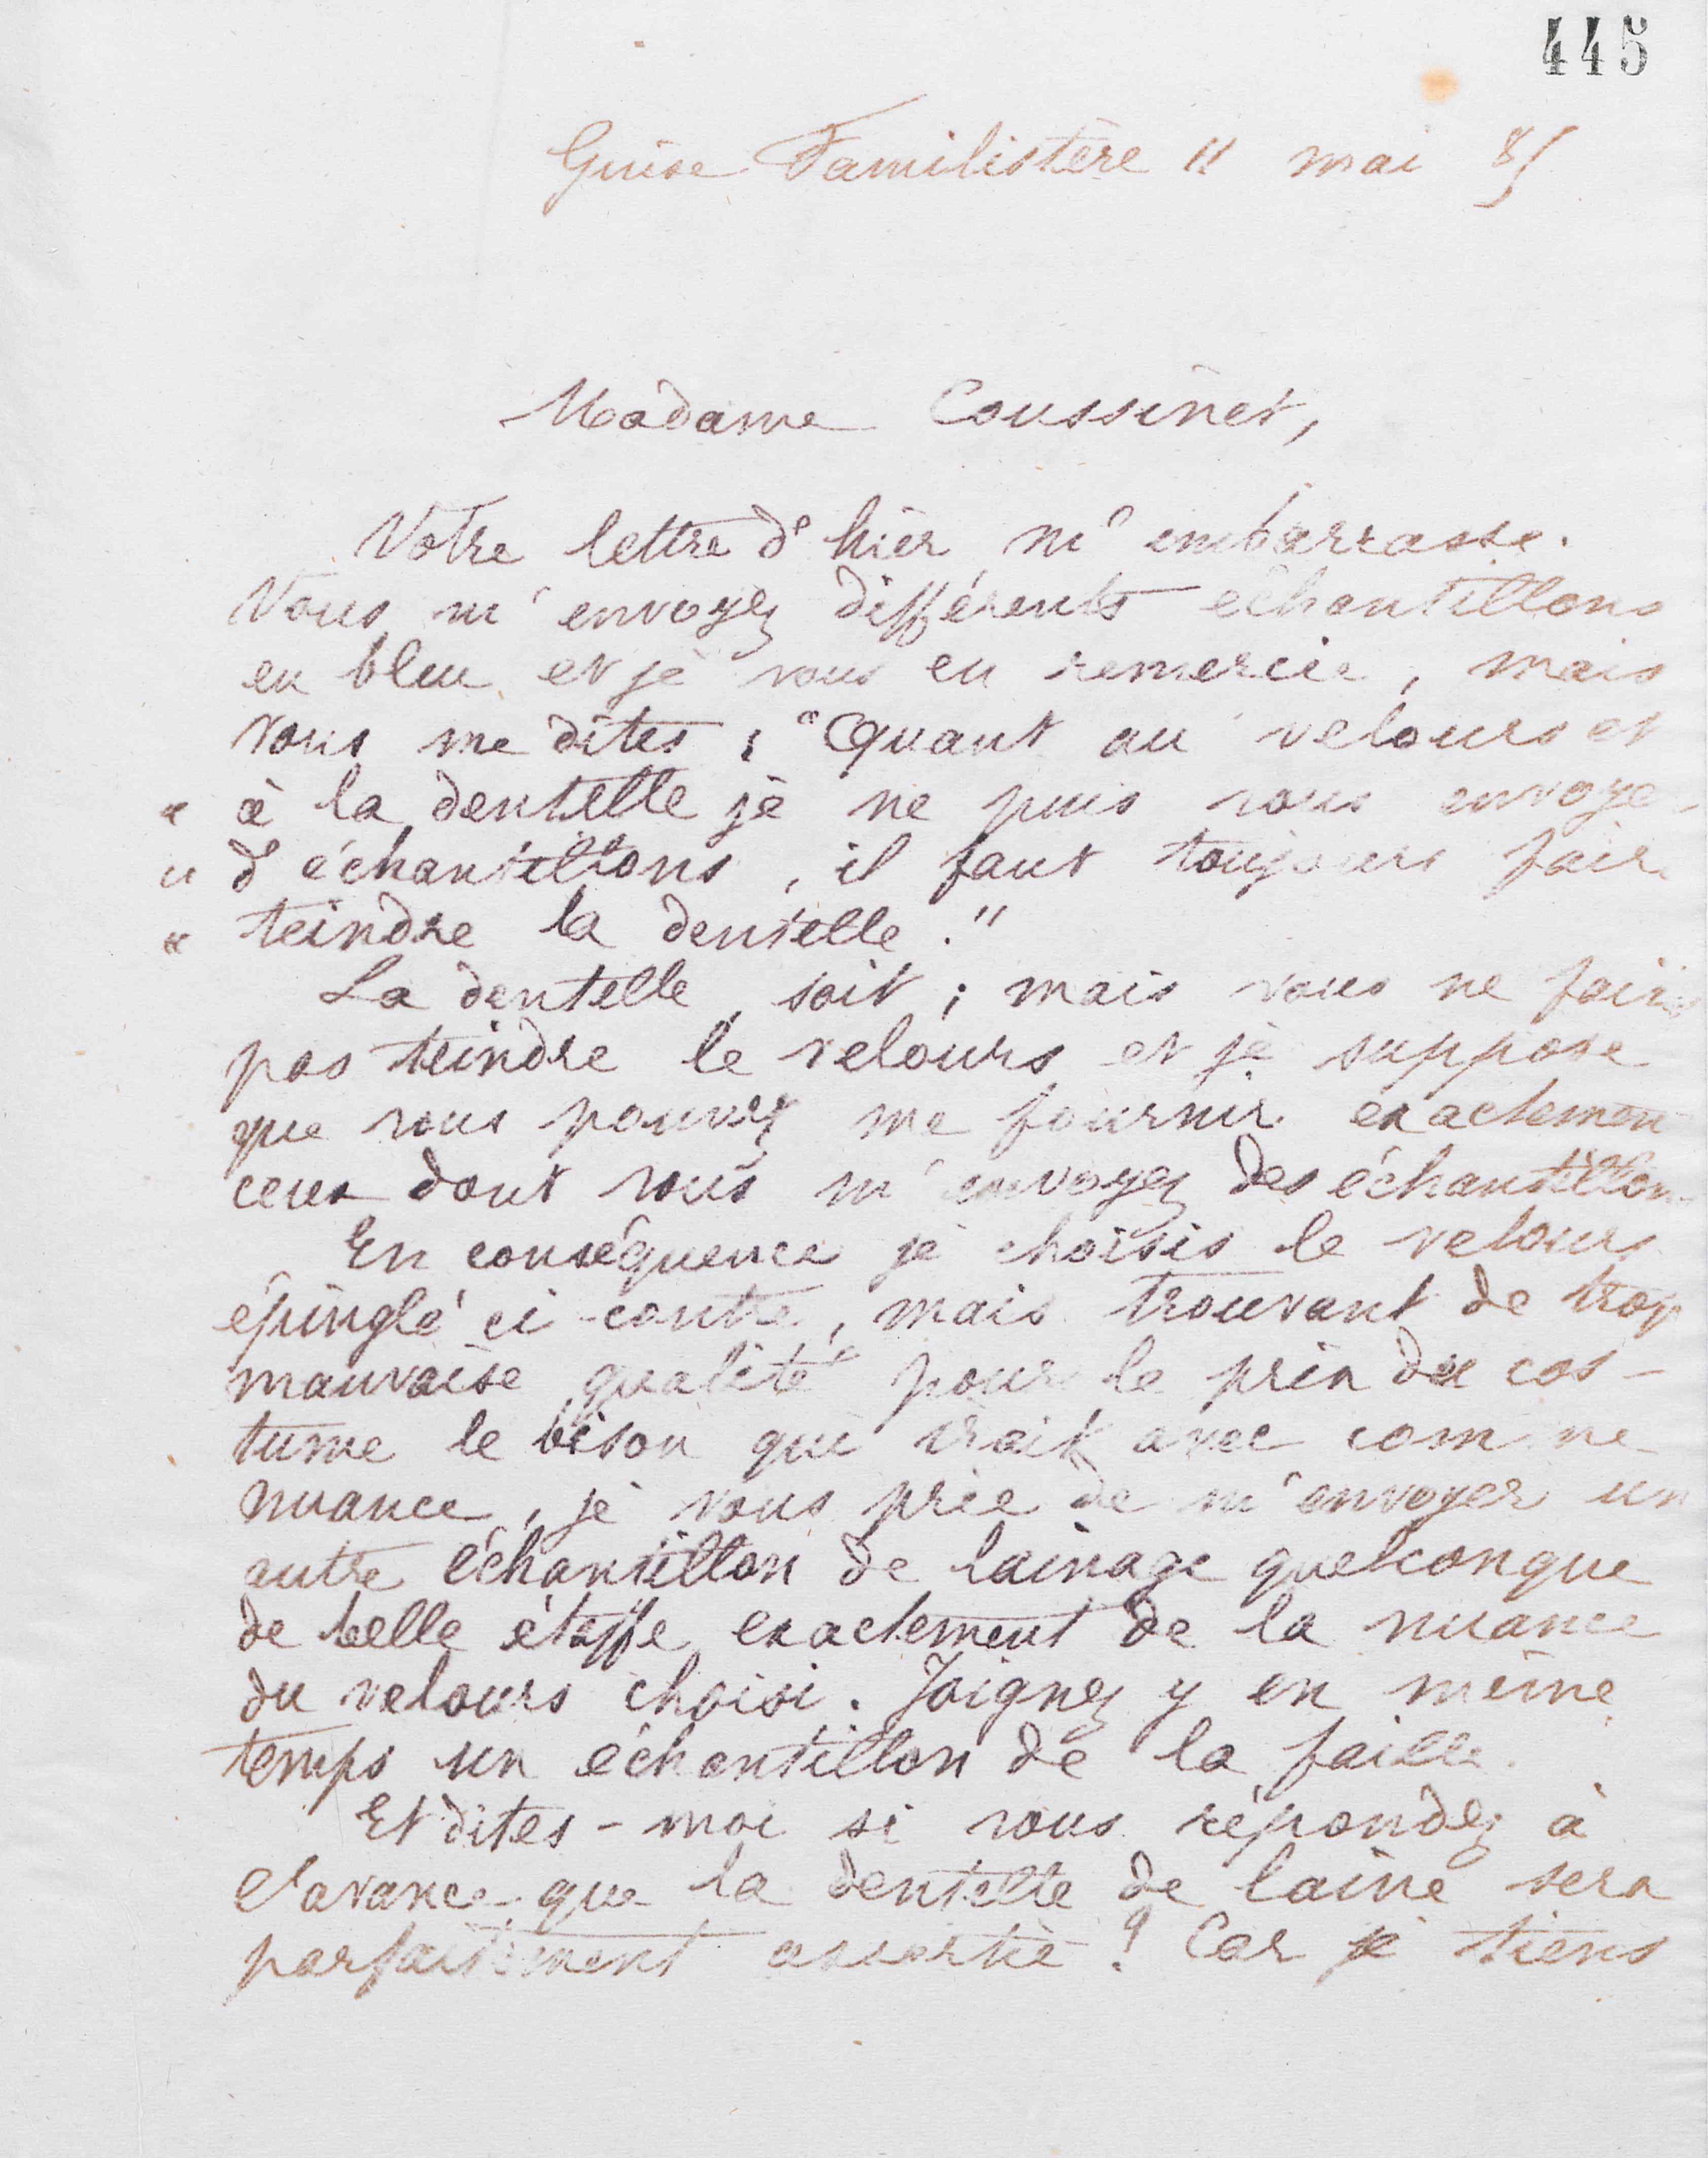 445
Guise Familistère 11 mai 85
Madame Coussinet,
Votre lettre d'hier m'embarrasse.
Vous m'envoyez différents échantillons
en bleu et je vous en remercie, mais
vous me dites : "Quant au velours et
" à la dentelle je ne puis vous envoye
" d'échantillons, il faut toujours faire
" teindre la dentelle."
La dentelle, soit ; mais vous ne faites
pas teindre le velours et je suppose
que vous pouvez me fournir exactemen
ceux dont vous m'envoyez des échantillons
En conséquence je choisis le velours
épinglé ci-contre, mais trouvant de trop
mauvaise qualité pour le prix du cos-
tume le bison qui irait avec comme
nuance, je vous prie de m'envoyer un
autre échantillon de lainage quelconque
de belle étoffe exactement de la nuance
du velours choisi. Joignez y en même
temps un échantillon de la faille.
Et dites-moi si vous répondez à
l'avance que la dentelle de laine sera
parfaitement assortie ? Car je tiens